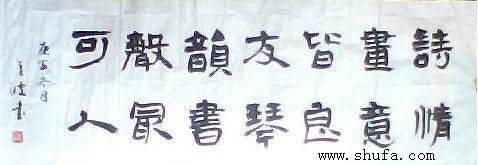 詩情
畫意
皆良
友琴
韻書
聲最
可人
庚寅冬月
www.shufa.com